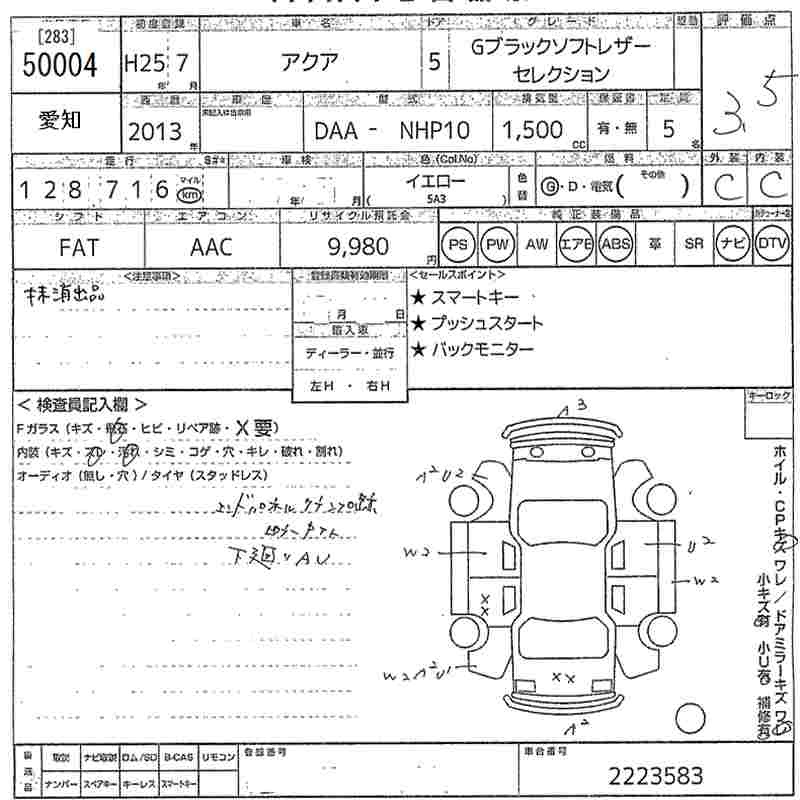 [283]
50004
初度登録
H25 7
年 月
車名
アクア
ドア
5
グレード
Gブラックソフトレザー
セレクション
評価点
3.5
愛知
西暦
2013
年
車歴
型式
DAA - NHP10
排気量
1,500
CC
有・無
定員
5
名
走行
128716
マイル
km
車検
年 月
色 (Col.No)
イエロー
( 5A3 )
色替
燃料
G・D・電気 ( その他 )
外装
C
内装
C
シフト
FAT
エアコン
AAC
リサイクル預託金
9,980
円
純正装備品
PS PW AW エアB ABS 革 SR ナビ DTV
<注意事項>
抹消出品
登録書類有効期限
月 日
輸入車
ディーラー・並行
左H ・ 右H
<セールスポイント>
★ スマートキー
★ プッシュスタート
★ バックモニター
< 検査員記入欄 >
キーロック
Fガラス (キズ・飛石・ヒビ・リペア跡・X要)
内装 (キズ・スレ・汚れ・シミ・コゲ・穴・キレ・破れ・割れ)
オーディオ (無し・穴) / タイヤ (スタッドレス)
下廻りAU
A3
A2U2
W2
U2
W2
XX
W2A2U1
XX
A2
ホイル・CPキズ ワレ / ドアミラーキズ ワレ
小キズ有 小U有 補修有
取説 ナビ取説 ロム/SD B-CAS リモコン
ナンバー スペアキー キーレス スマートキー
登録番号
車台番号
2223583